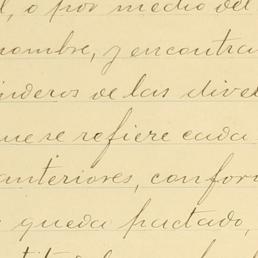 o por medio del
nombre, y encontra
linderos de las dive
que se refiere cada
anteriores, confor
queda pactado,